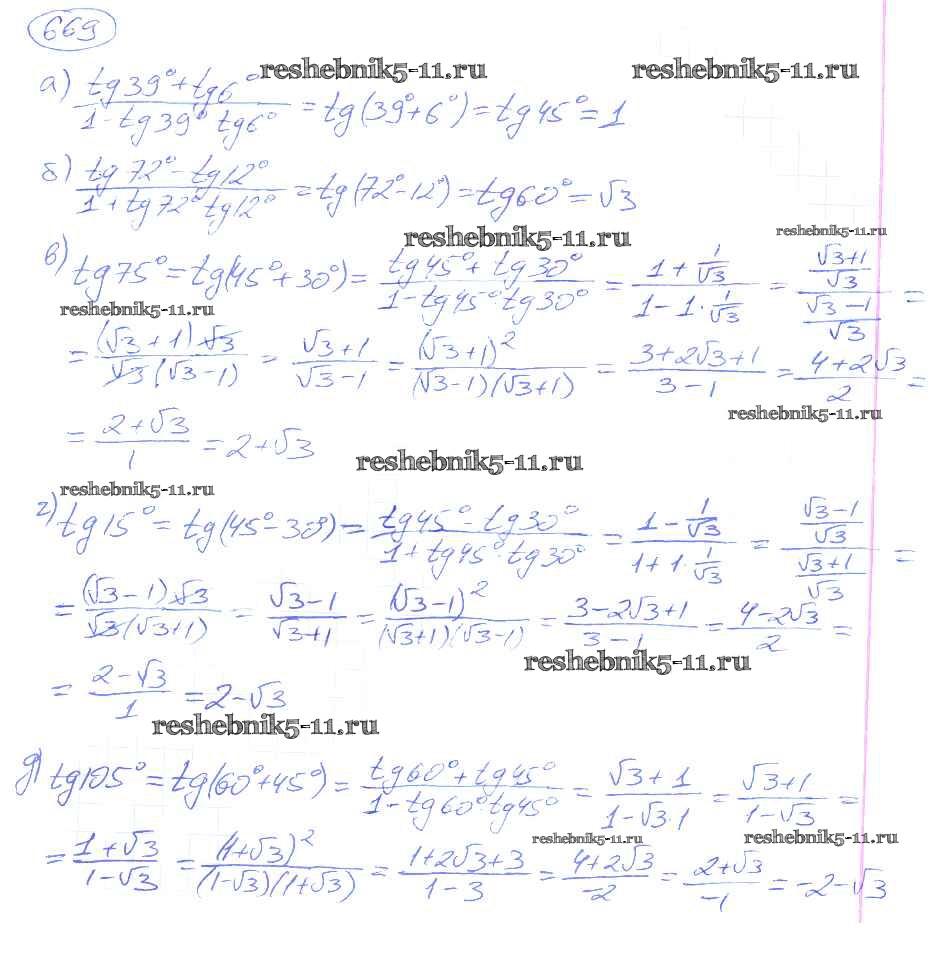 669
reshebnik5-11.ru reshebnik5-11.ru
а) (tg39° + tg6°)/(1 - tg39° tg6°) = tg(39° + 6°) = tg45° = 1
б) (tg72° - tg12°)/(1 + tg72° tg12°) = tg(72° - 12°) = tg60° = √3
reshebnik5-11.ru reshebnik5-11.ru
в) tg75° = tg(45° + 30°) = (tg45° + tg30°)/(1 - tg45° · tg30°) = (1 + 1/√3)/(1 - 1 · 1/√3) = ((√3+1)/√3)/((√3-1)/√3) =
reshebnik5-11.ru
= ((√3+1)√3)/(√3(√3-1)) = (√3+1)/(√3-1) = (√3+1)²/((√3-1)(√3+1)) = (3+2√3+1)/(3-1) = (4+2√3)/2 =
reshebnik5-11.ru
= (2+√3)/1 = 2+√3
reshebnik5-11.ru
reshebnik5-11.ru
г) tg15° = tg(45° - 30°) = (tg45° - tg30°)/(1 + tg45° · tg30°) = (1 - 1/√3)/(1 + 1 · 1/√3) = ((√3-1)/√3)/((√3+1)/√3) =
= ((√3-1)√3)/(√3(√3+1)) = (√3-1)/(√3+1) = (√3-1)²/((√3+1)(√3-1)) = (3-2√3+1)/(3-1) = (4-2√3)/2 =
reshebnik5-11.ru
= (2-√3)/1 = 2-√3
reshebnik5-11.ru
д) tg105° = tg(60° + 45°) = (tg60° + tg45°)/(1 - tg60° tg45°) = (√3+1)/(1-√3·1) = (√3+1)/(1-√3) =
reshebnik5-11.ru reshebnik5-11.ru
= (1+√3)/(1-√3) = (1+√3)²/((1-√3)(1+√3)) = (1+2√3+3)/(1-3) = (4+2√3)/-2 = (2+√3)/-1 = -2-√3